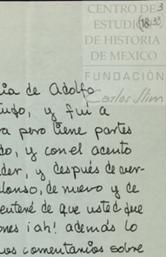 CENTRO DE
ESTUDIOS
DE HISTORIA
DE MEXICO
FUNDACIÓN
Carlos Slim
3
ia de Adolfo
y fuí a
a pero tiene partes
do, y con el acento
der, y después de ver-
lonso, de nuevo y de
enteré de que usted que
iones ¡ah! además lo
os comentarios sobre